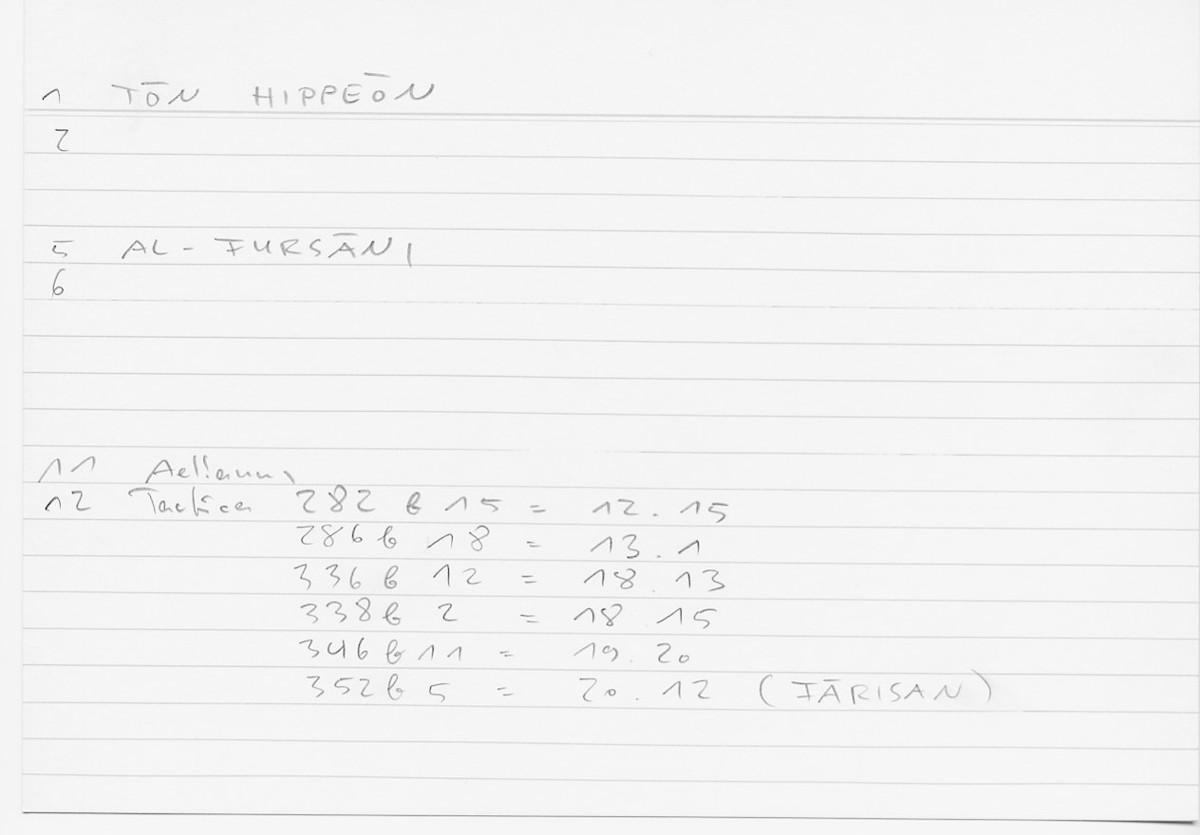 1 TŌN HIPPEŌN
2
5 AL - FURSĀNI
6
11 Aelianus,
12 Tactica 282 b 15 = 12. 15
286 b 18 = 13. 1
336 b 12 = 18. 13
338 b 2 = 18 15
346 b 11 = 19. 20
352 b 5 = 20. 12 (FĀRISAN)